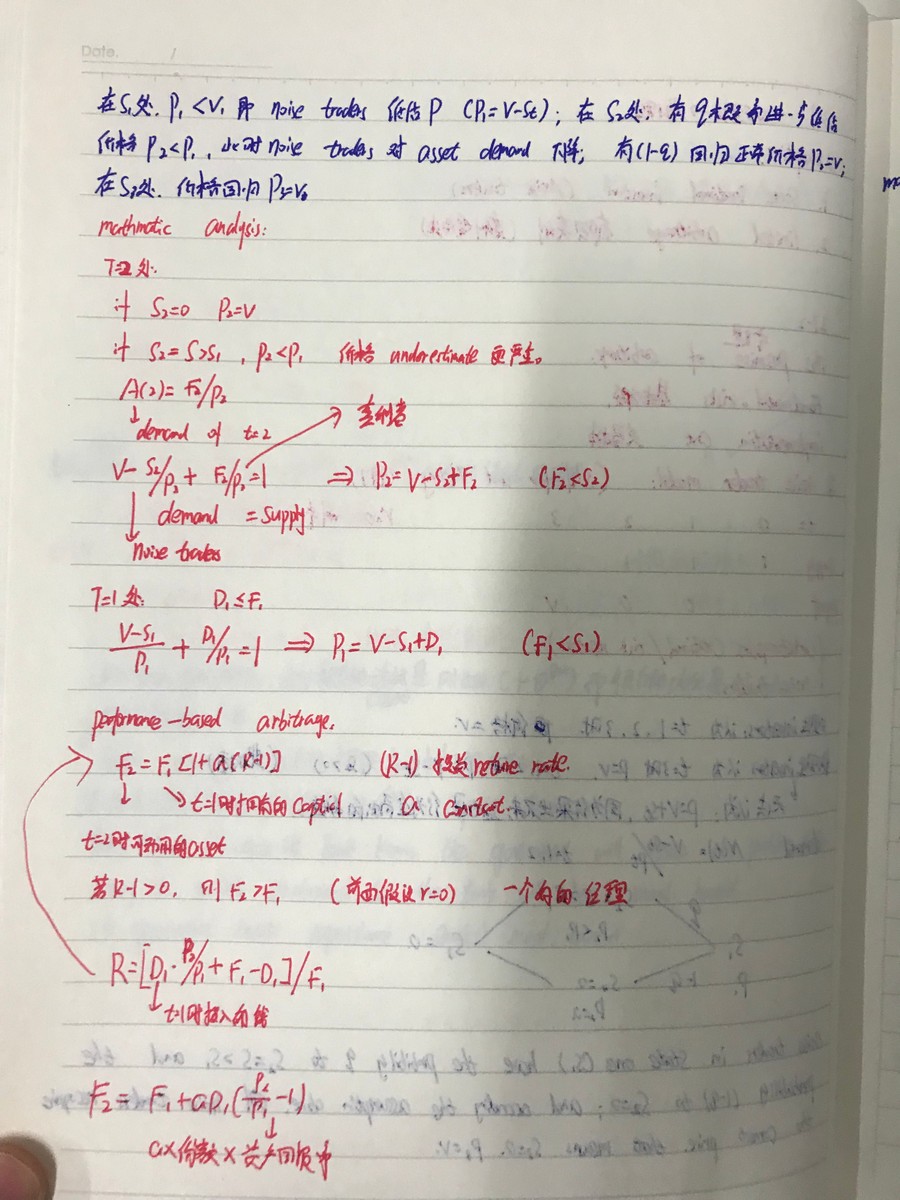 Date. /
在S₁处. P₁<V, 即 noise traders 低估 P (P₁=V-St); 在 S₂处, 有 q 概率进一步低估
价格 P₂<P₁, 此时 noise traders 对 asset demand 下降; 有(1-q) 回归正常价格 P₂=V;
在S₃处. 价格回归 P₃=V。
mathmatic analysis:
T=2 处:
if S₂=0 P₂=V
if S₂=S>S₁, P₂<P₁ 价格 underestimate 更严重。
A(2)=F₂/P₂
demand of t=2
套利者
V-S₂/P₂ + F₂/P₂=1 ⇒ P₂=V-S₂+F₂ (F₂<S₂)
demand = supply
Noise traders
T=1处: D₁≤F₁
V-S₁/P₁ + D₁/P₁=1 ⇒ P₁=V-S₁+D₁ (F₁<S₁)
performance-based arbitrage.
F₂=F₁[1+a(R-1)] (R-1) 投资 return rate.
t=1时拥有的 capital a constant.
t=2时可利用的asset
若R-1>0, 则 F₂>F₁ (前面假设 r=0) 一个 经理
R=[D₁·P₂/P₁+F₁-D₁]/F₁
t=1时投入的钱
F₂=F₁+aD₁(P₂/P₁-1)
a×份数×资产回报率